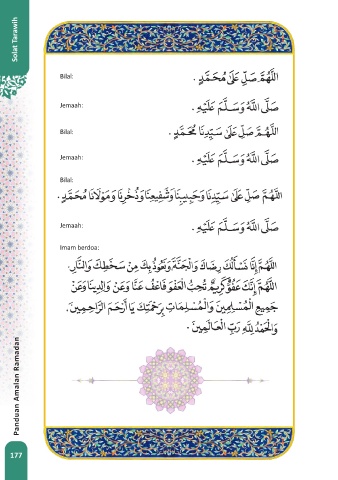 Solat Tarawih
Bilal:
اَللّٰهُمَّ صَلِّ عَلَىٰ مُحَمَّدٍ .
Jemaah:
صَلَّى اللَّهُ وَسَلَّمَ عَلَيْهِ .
Bilal:
اَللّٰهُمَّ صَلِّ عَلَىٰ سَيِّدِنَا مُحَمَّدٍ .
Jemaah:
صَلَّى اللَّهُ وَسَلَّمَ عَلَيْهِ .
Bilal:
اَللّٰهُمَّ صَلِّ عَلَىٰ سَيِّدِنَا وَحَبِيبِنَا وَشَفِيعِنَا وَذُخْرِنَا وَمَوْلَانَا مُحَمَّدٍ .
Jemaah:
صَلَّى اللَّهُ وَسَلَّمَ عَلَيْهِ .
Imam berdoa:
اَللّٰهُمَّ إِنَّا نَسْأَلُكَ رِضَاكَ وَالْجَنَّةَ وَنَعُوْذُ بِكَ مِنْ سَخَطِكَ وَالنَّارِ.
اَللّٰهُمَّ إِنَّكَ عَفُوٌّ كَرِيْمٌ تُحِبُّ الْعَفْوَ فَاعْفُ عَنَّا وَعَنْ وَالِدِيْنَا وَعَنْ
جَمِيعِ الْمُسْلِمِيْنَ وَالْمُسْلِمَاتِ بِرَحْمَتِكَ يَا أَرْحَمَ الرَّاحِمِيْنَ.
وَالْحَمْدُ لِلَّهِ رَبِّ الْعَالَمِيْنَ .
Panduan Amalan Ramadan
177